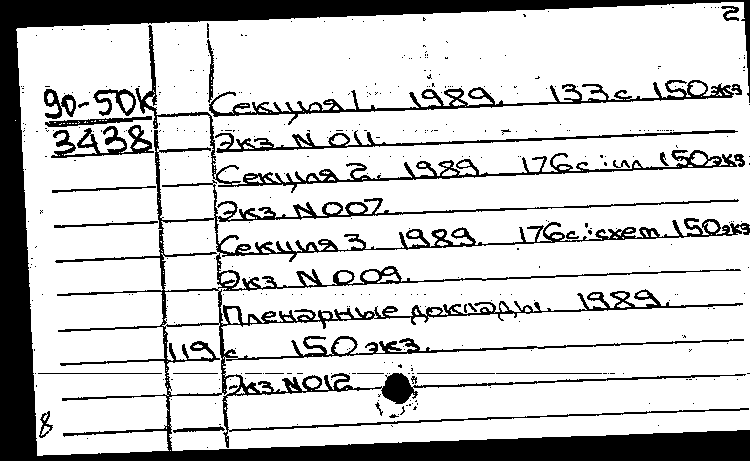 2
90-5DK Секция 1. 1989. 133с. 150экз
3438 Экз. N 011.
Секция 2. 1989. 176с.:ил 150экз.
Экз. N007.
Секция 3. 1989. 176с.:схем. 150экз
Экз. N 009.
Пленарные доклады. 1989.
119 с. 150 экз.
Экз. N012.
8